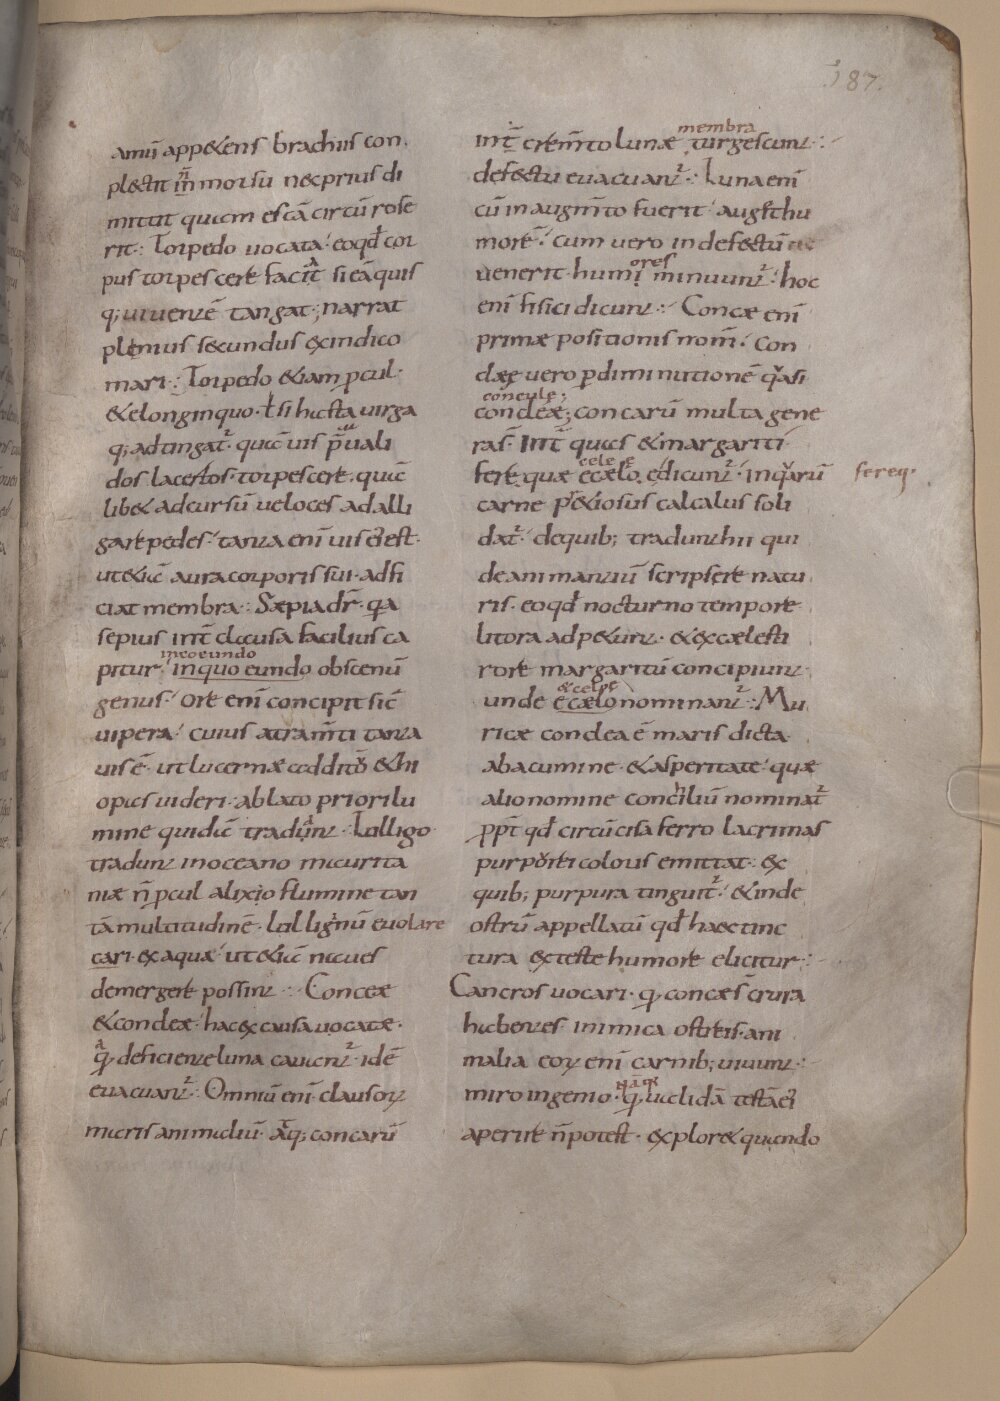 187.
amū app&ens brachiis con
plectit īn morsu nec prius di
mittit quam escā circū rose
rit· Torpedo uocata· eo qđ cor
pus torpescere faciat̄ si eā quis
q; uiuentē tangat; narrat
plenius secundus ex indico
mari· Torpedo &iam pcul·
& elonginquo· ł si hasta uirga
q; adtingat᷑· quāuis p̄uali
dos lacertos· torpescere· quāc
lib& ad cursū ueloces adalli
gare pedes· tanta enī uis ei est·
ut &iā aura corporis sui· adfi
ciat membra· Sæpia dr̄· qa
sepius int̄ clausa facilius ca
incoeundo
pitur· in quo eundo obscenū
genus· ore enī concipit sic̄
uipera· cuius atram̄ti tanta
uis ē· ut lucernæ addito & hi
opas uideri· ablato priori lu
mine quidā tradunt· Lolligo
tradunt in oceano mauritа
niæ n̄ pcul alixio flumine tan
tā multitudinē· lollignū euolare
cari· ex aqua· ut &iā naues
demergere possint· Conceæ
& concleæ· hac ex causa uocatæ·
q; deficiente luna cauent᷑· idē
euacuant᷑· Omniū enī clausoꝝ
maris animaliū· atq; concarū
membra
int̄ crem̄to lunæ turgescunt·
defectu euacuant᷑· Luna enī
cū in augm̄to fuerit· auget hu
morē· cum uero in defectū
ores
uenerit· humi minuunt᷑· hoc
enī fisici dicunt· Concæ enī
primæ positionis nom̄· con
clæ uero p diminutionē quasi
concule;
concleæ; concarū multa gene
ras̄· int̄ quas & margariti
celeę
feræ quæ ecælo edicunt᷑· in quarū fereq·
carne p&iosus calculus soli
dat᷑· de quib; tradunt hii qui
de animantiū scripsere natu
ris· eo qđ nocturno tempore
litora adpetunt· & ex cælesti
rore margaritū concipiunt
& celeę
unde ecælo nominant᷑· Mu
ricæ conclea ē maris dicta
ab acumine· & asperitate· quæ
alio nomine conciliū nominat᷑
ppt̄ qđ circūcisa ferro lacrimas
purporei coloris emittat· ex
quib; purpura tinguit᷑· & inde
ostrū appellatū qđ haec tinc
tura ex teste humore elicitur·
Cancros uocari· q; concæ s̄ crura
habentes· inimica ostreis· ani
malia eoꝝ enī carnib; uiuunt·
miro ingenio· q; ualidā testā ei
aperire n̄ potest· explor& quando